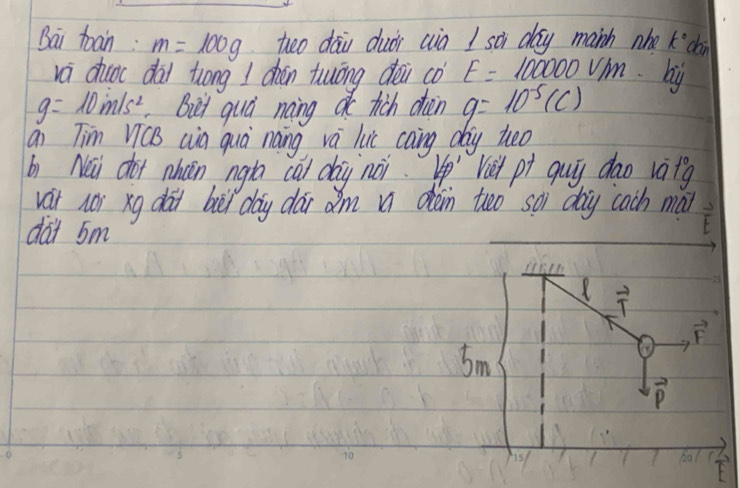 Bài toán : m = 100g treo đầu dưới của 1 sợi dây mảnh nhẹ k° dãn
và được đặt trong 1 điện trường đều có E = 100000 V/m. lấy
g = 10 m/s². Biết quả nặng đc tích điện q = 10⁻⁵ (C)
a) Tìm VTCB của quả nặng và lực căng dây treo
b) Nếu đột nhiên ngta cắt dây nối. Viết pt quỹ đạo và tg
vật rơi xg đất biết dây dài 2m và điểm treo sợi dây cách mặt
đất 5m
E
l
T
F
5m
P
E
0 5 10 15 20